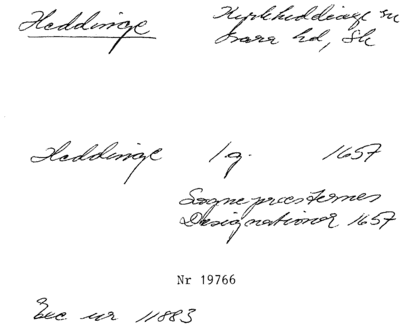 Heddinge Kyrkheddinge sn
Bara hd, Sk
Heddinge 1 g. 1657
Sognepræsternes
Designationer 1657
Nr 19766
Exc nr 11883